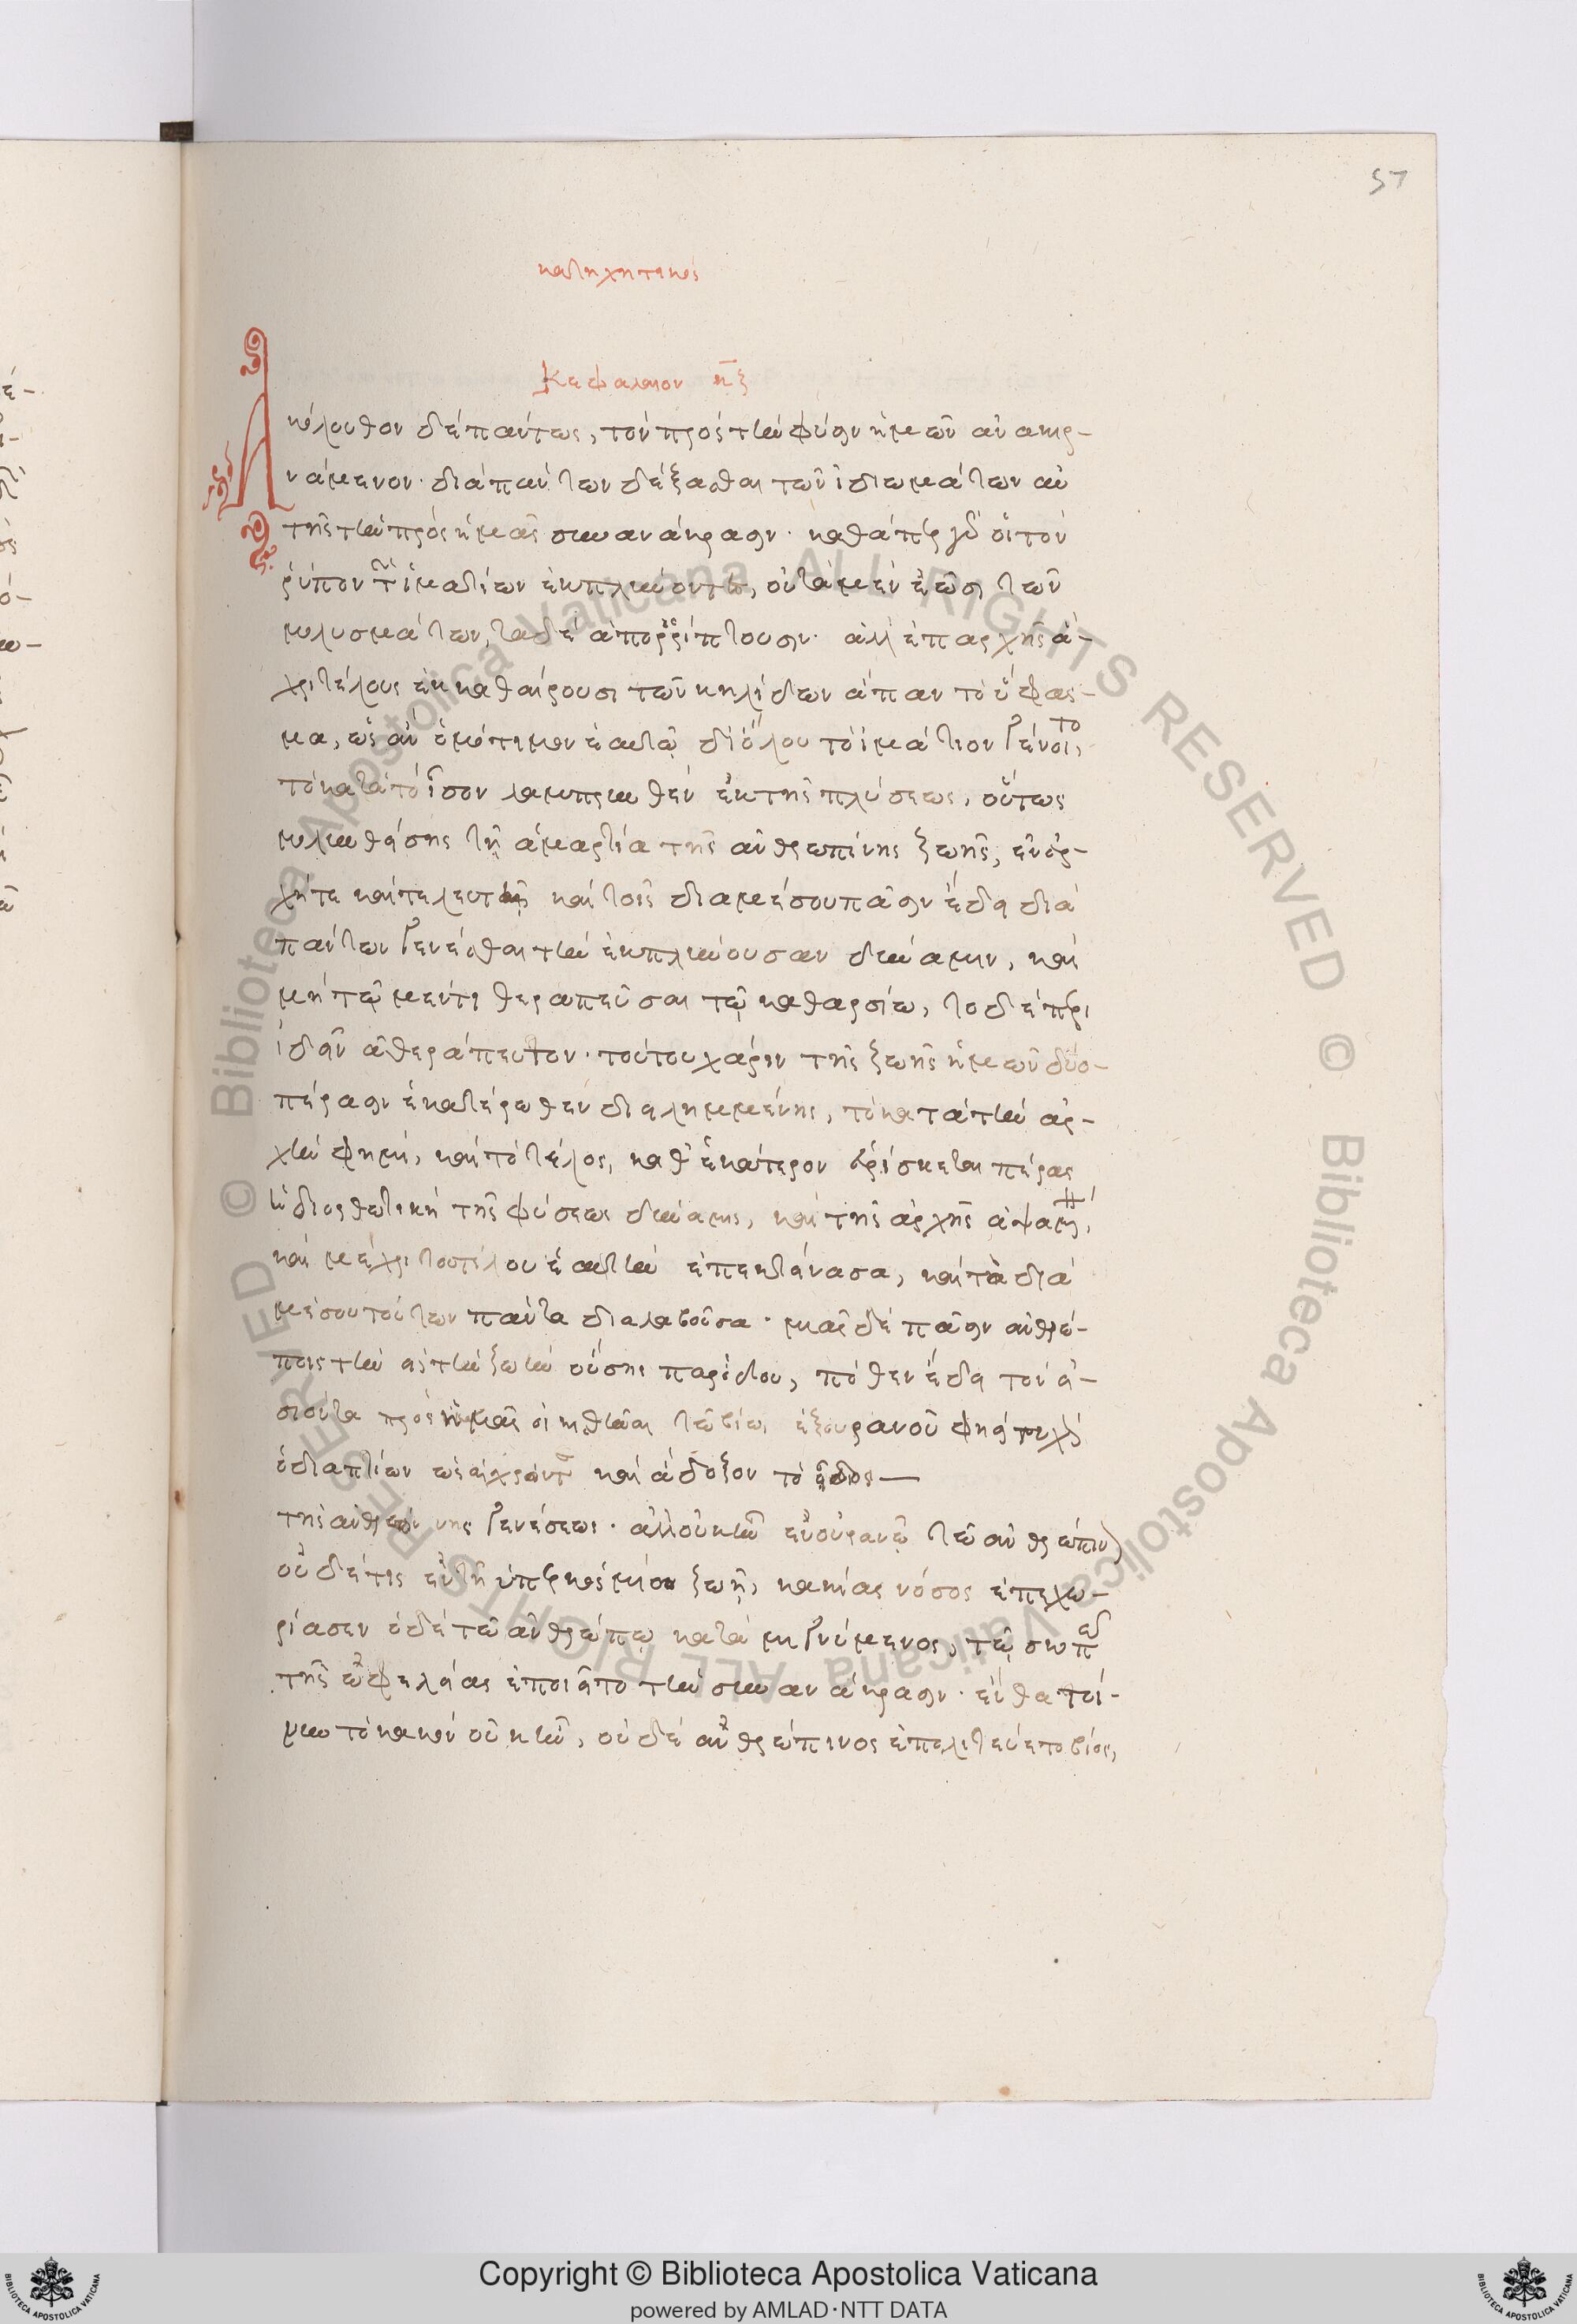 57
κατηχητικός
Κεφάλαιον κζ
Ἀκόλουθον δὲ πάντως, τὸν πρὸς τὴν φύσιν ἡμῶν ἀνακιρ-
νάμενον· διὰ πάντων δέξασθαι τῶν ἰδιωμάτων αὐ
τῆς τὴν πρὸς ἡμᾶς συνανάκρασιν· καθάπερ γὰρ οἱ τὸν
ῥύπον τῶν ἱματίων ἐκπλύνοντες, οὐ τὰ μὲν ἐῶσι τῶν
μολυσμάτων, τὰ δὲ ἀπορρίπτουσιν· ἀλλ' ἐπ' ἀρχῆς ἄ-
χρι τέλους ἐκκαθαίρουσι τῶν κηλίδων ἅπαν τὸ ὕφασ-
μα, ὡς ἂν ὁμότιμον ἑαυτῷ δι' ὅλου τὸ ἱμάτιον γένοιτο,
τὸ κατὰ τὸ ἴσον λαμπρυνθὲν ἐκ τῆς πλύσεως, οὕτως
μολυνθείσης τῇ ἁμαρτίᾳ τῆς ἀνθρωπίνης ζωῆς, ἐν ἀρ-
χῇ τε καὶ τελευτῇ καὶ τοῖς διὰ μέσου πᾶσιν ἔδει διὰ
πάντων γενέσθαι τὴν ἐκπλύνουσαν δύναμιν, καὶ
μὴ τῷ μέν τι θεραπεῦσαι τῷ καθαρσίῳ, τὸ δὲ περι
ιδεῖν ἀθεράπευτον· τούτου χάριν τῆς ζωῆς ἡμῶν δύο-
πέρασιν ἑκατέρωθεν διειλημμένης, τὸ κατὰ τὴν ἀρ-
χὴν φημὶ, καὶ τὸ τέλος, καθ' ἑκάτερον εὑρίσκεται πέρας
ἡ διορθωτικὴ τῆς φύσεως δύναμις, καὶ τῆς ἀρχῆς ἁψαμένη,
καὶ μέχρι τοῦ τέλου ἑαυτὴν ἐπεκτείνασα, καὶ τὰ διὰ
μέσου τούτων πάντα διαλαβοῦσα· μιᾶς δὲ πᾶσιν ἀνθρώ-
ποις τῆν εἰς τὴν ζωὴν οὔσης παρόδου, πόθεν ἔδει τὸν εἰ-
σιόντα πρὸς ἡμᾶς οἰκισθῆναι τῷ βίῳ, ἐξ οὐρανοῦ φησὶ τυχὸν
ὁ διαπτύων ὡς αἰσχρόν τε καὶ ἄδοξον τὸ εἶδος —
τῆς ἀνθρωπίνης γενέσεως· ἀλλ' οὐκ ἦν ἐν οὐρανῷ τὸ ἀνθρώπινον
οὐδέ τις ἐν τῇ ὑπερκοσμίῳ ζωῇ, κακίας νόσος ἐπεχω-
ρίασεν ὁ δὲ τῷ ἀνθρώπῳ καταμιγνύμενος, τῷ σκοπῷ
τῆς ὠφελείας ἐποιεῖτο τὴν συνανάκρασιν· ἔνθα τοί-
νυν τὸ κακὸν οὐκ ἦν, οὐδὲ ἀνθρώπινος ἐπολιτεύετο βίος,
Copyright © Biblioteca Apostolica Vaticana
powered by AMLAD·NTT DATA